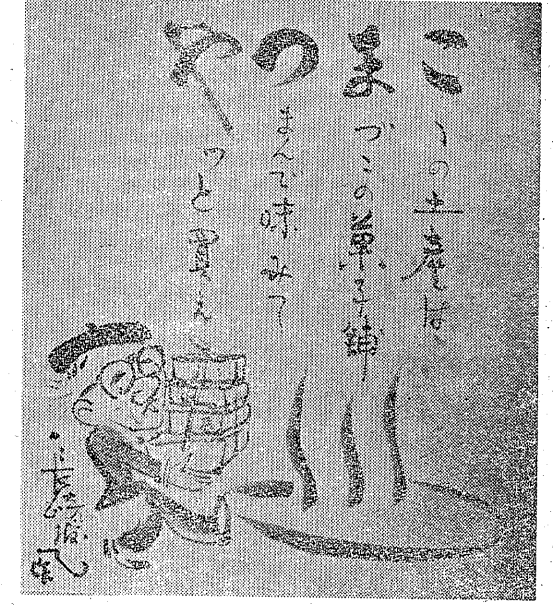 こゝの土産は
まづこの菓子舗
つまんで味みて
やつと買え